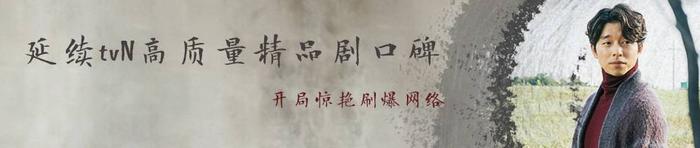 延续tvN高质量精品剧口碑
开局惊艳刷爆网络